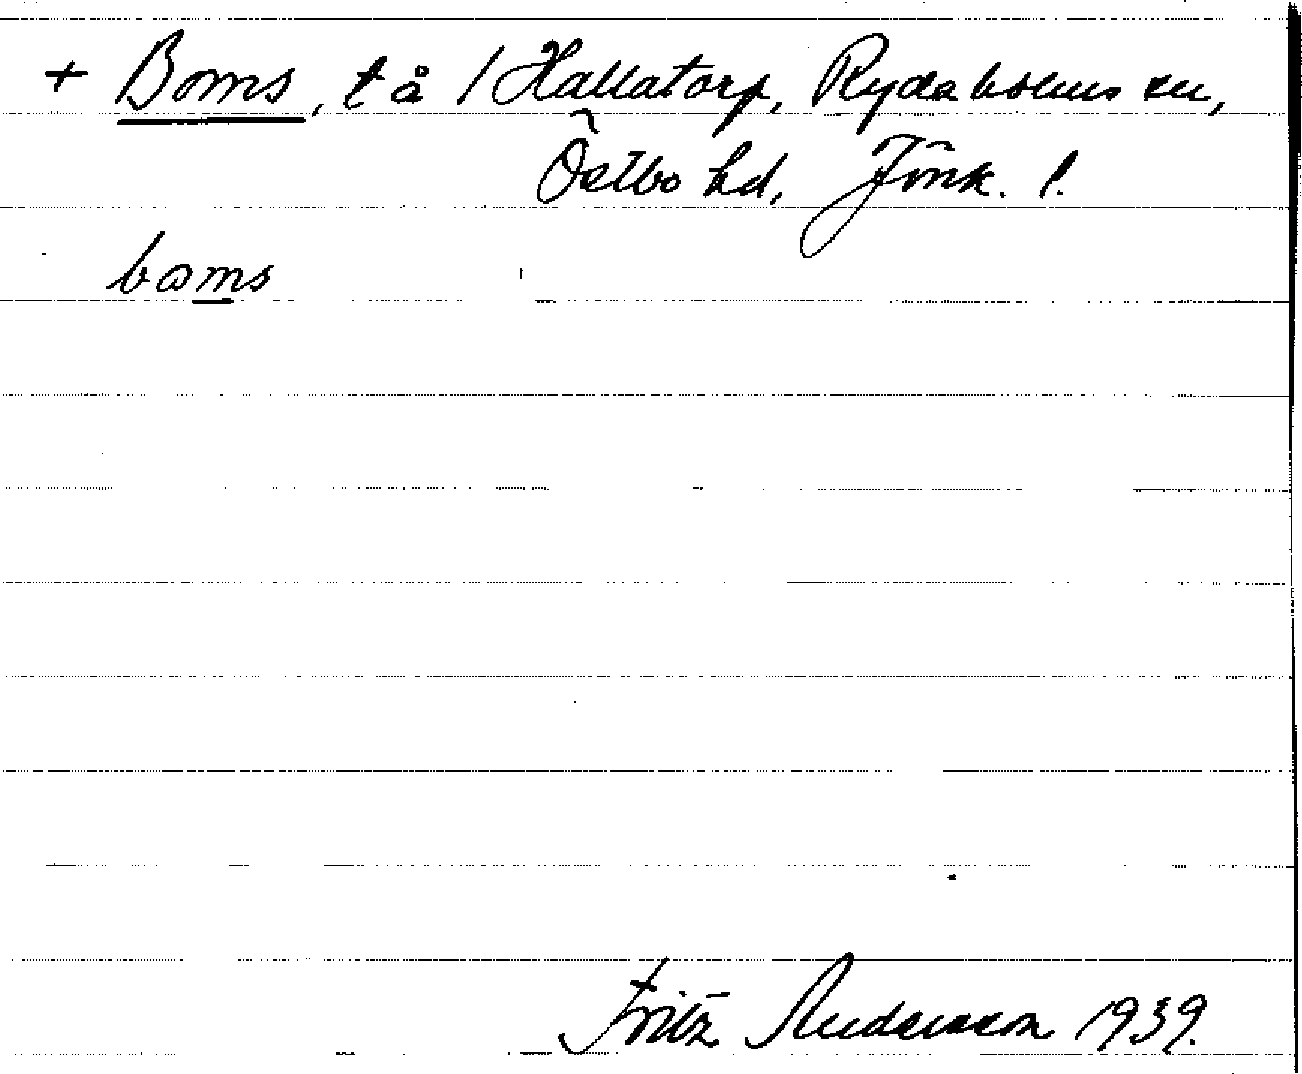 + Boms, t å / Hallatorp, Rydaholms sn,
Östbo hd, Jönk. l.
bɷms
Fritz Andersson 1939.